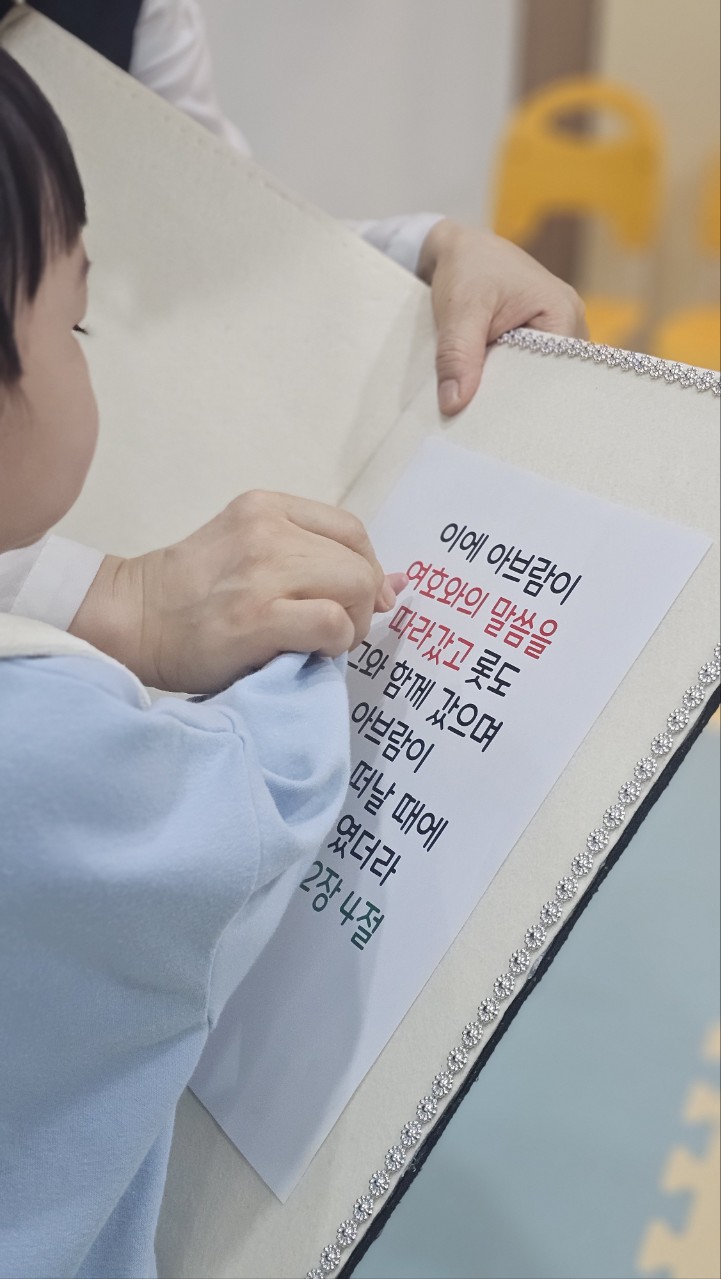 이에 아브람이
여호와의 말씀을
따라갔고 롯도
그와 함께 갔으며
아브람이
떠날 때에
였더라
2장 4절